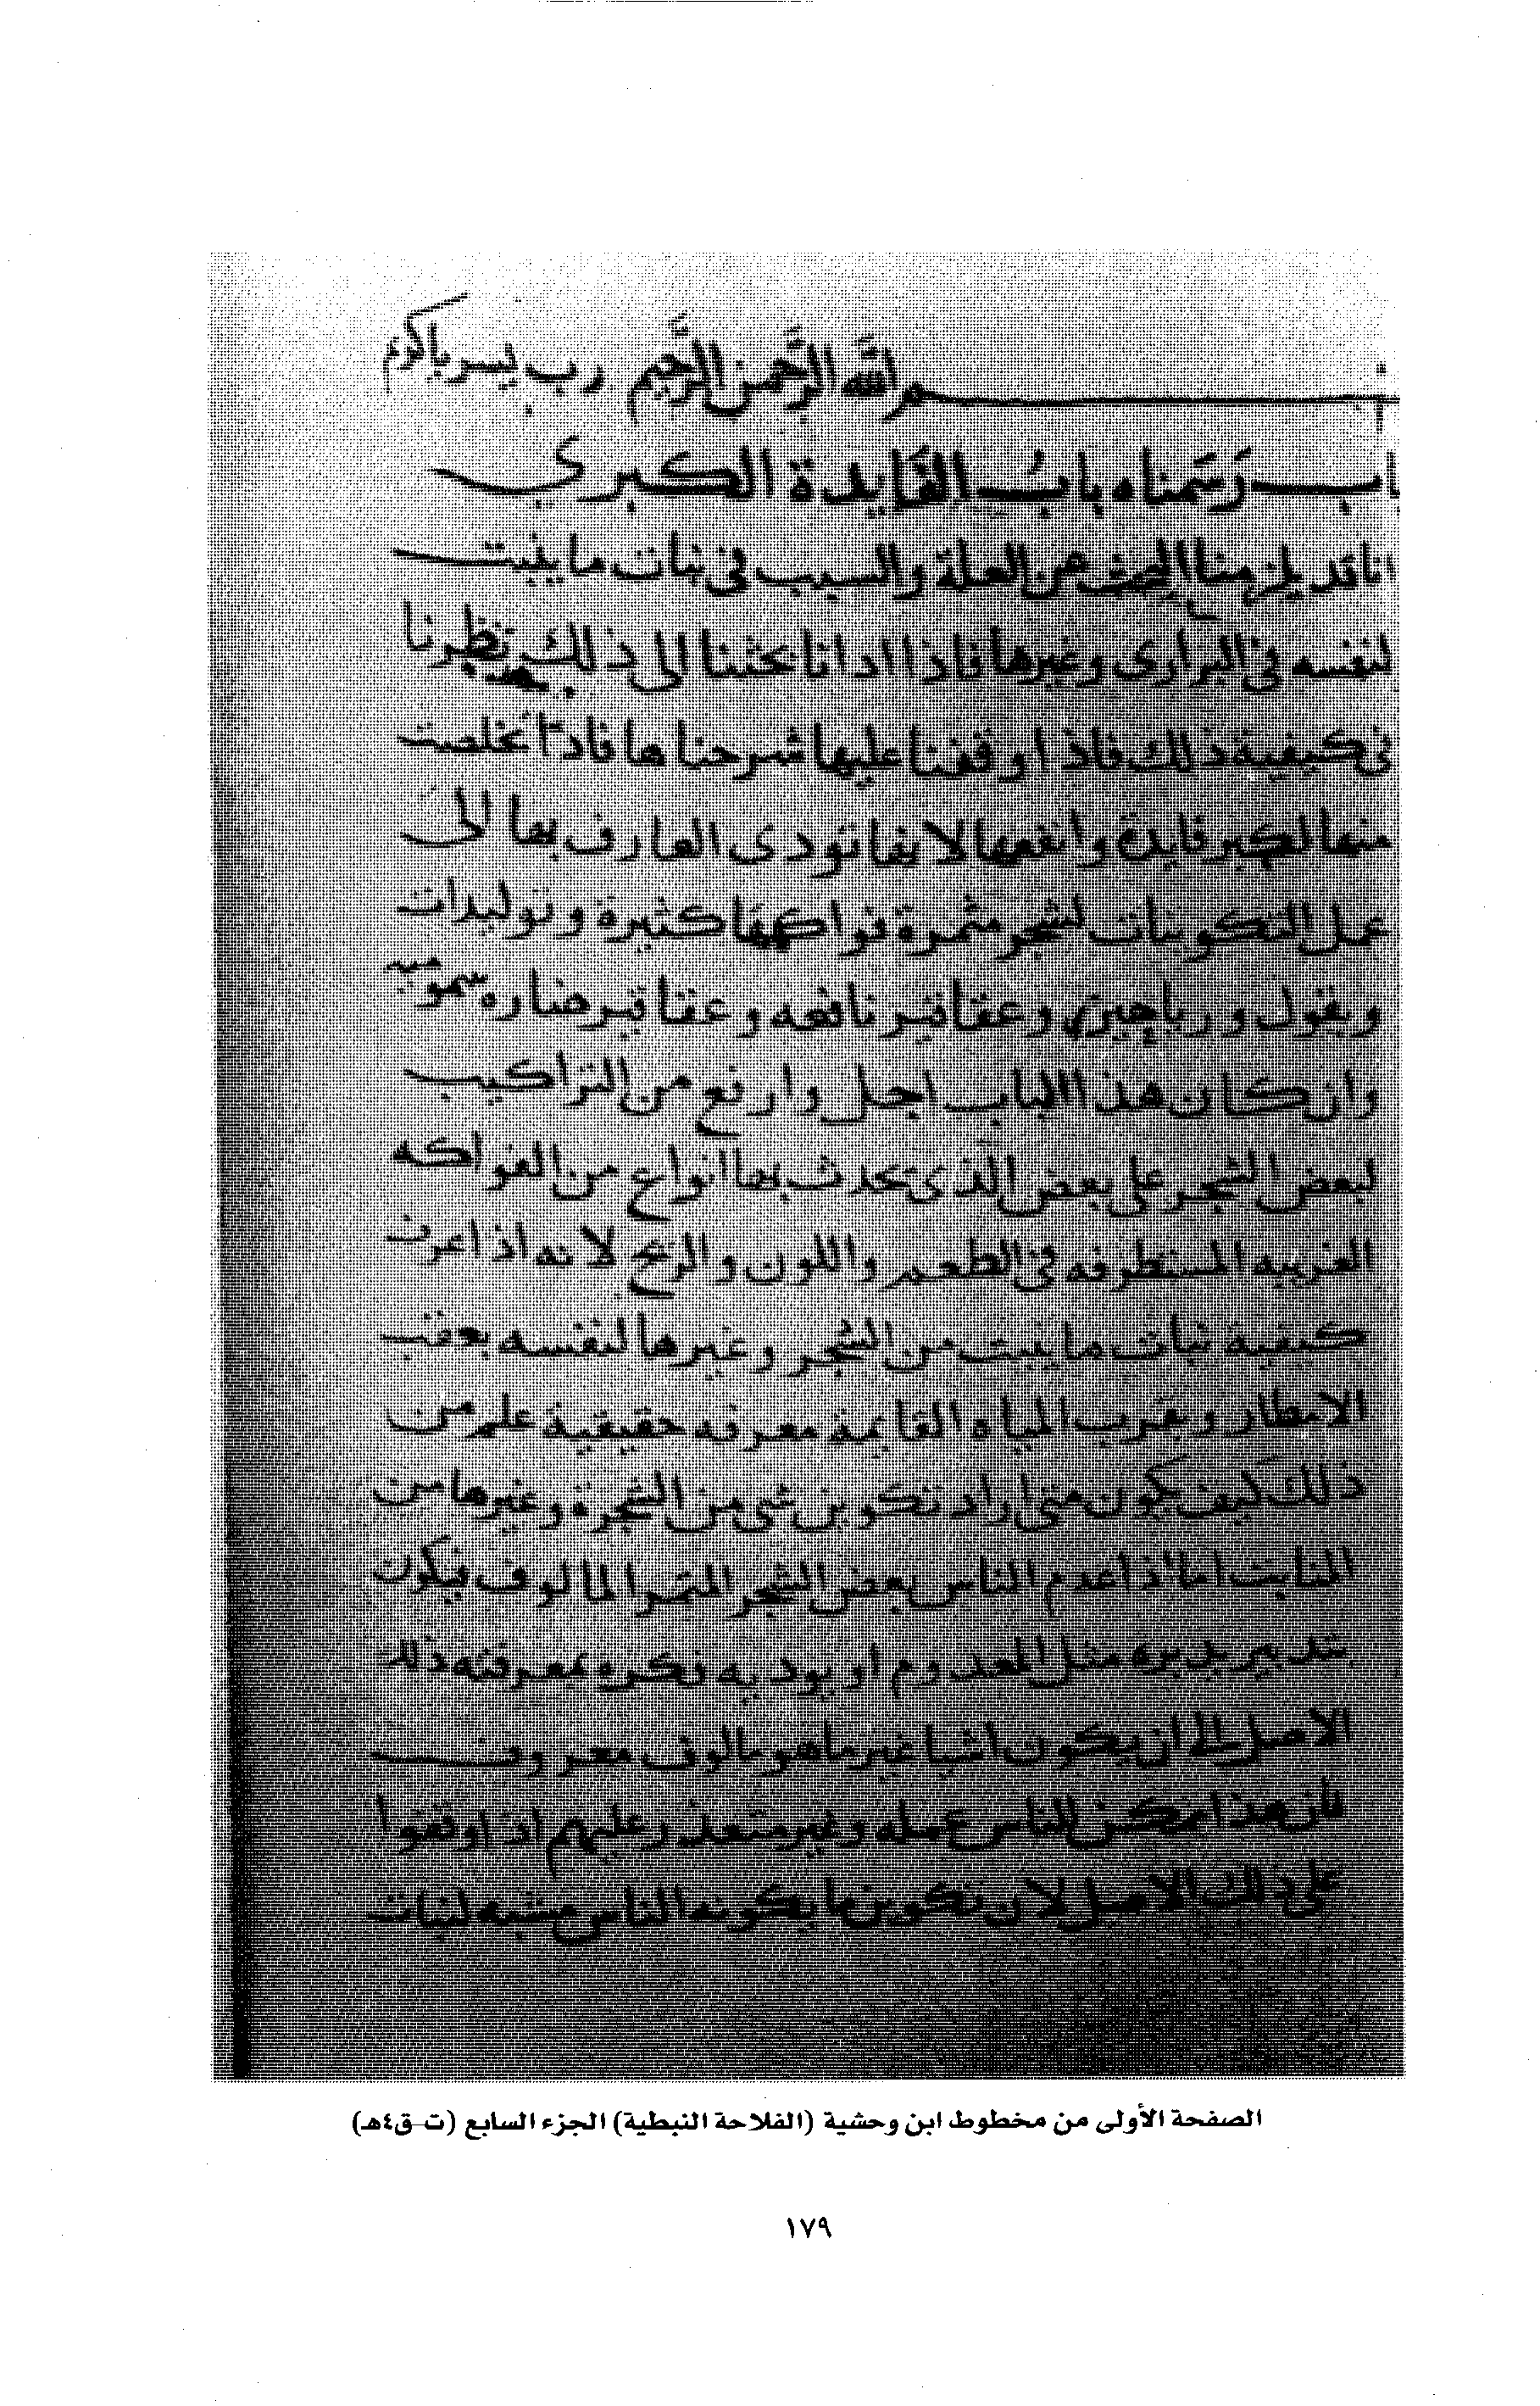 بسم الله الرحمن الرحيم رب يسر ياكريم
باب رسمناه باب الفايدة الكبري
انا قد يلزمنا البحث عن العلة والسبب في نبات ما ينبت
لنفسه في البراري وغيرها فاذا ادانا بحثنا الى ذلك نظرنا
في كيفية ذلك فاذا وقفنا عليها شرحناها فاذا تخلصت
منها لكبر فايدة وانفعها لانها تودى العارف بها الى
عمل التكوينات لشجر مثمرة فواكهها كثيرة وتوليدات
وبقول ورياحين وعقاقير نافعه وعقاقير ضاره سموميه
وان كان هذا الباب اجل وارفع من التراكيب
لبعض الشجر على بعض الذي تحدث بها انواع من الفواكه
الغريبه المستطرفه في الطعم واللون والريح لانه اذا عرف
كيفية نبات ما ينبت من الشجر وغيرها لنفسه بعقب
الامطار وبقرب المياه القايمة معرفه حقيقية علم من
ذلك كيف يكون متى اراد تكوين شى من الشجرة وغيرها من
المنابت اما اذا عدم الناس بعض الشجر المثمر المالوف فيكون
بتدبير يدبره مثل المعدوم او يود به فكره بمعرفته ذلك
الاصل الى ان يكون اشيا غير ما هو مالوف معروف
فان هذا ممكن للناس عمله وغير متعذر عليهم اذا وقفوا
على ذلك الاصل لان تكوين ما يكونه الناس مشبه لنبات
الصفحة الأولى من مخطوط ابن وحشية (الفلاحة النبطية) الجزء السابع (ت-ق٤هـ)
١٧٩